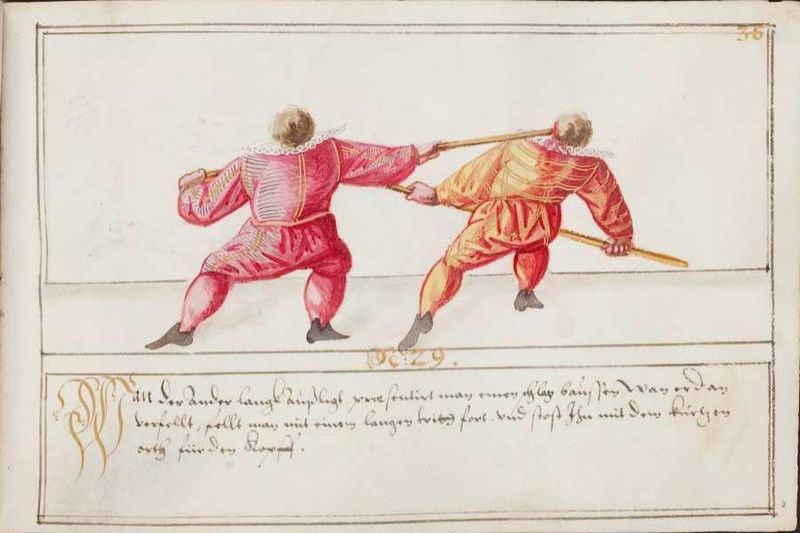 36
N: 29.
Wan der Ander langk Außligt, præsentirt man einen schlag baussen Wan er dan
verfellt, fellt man mit einem langen tritt fort, vnd stost Ihn mit dem kurtzen
orth für den Kopff.